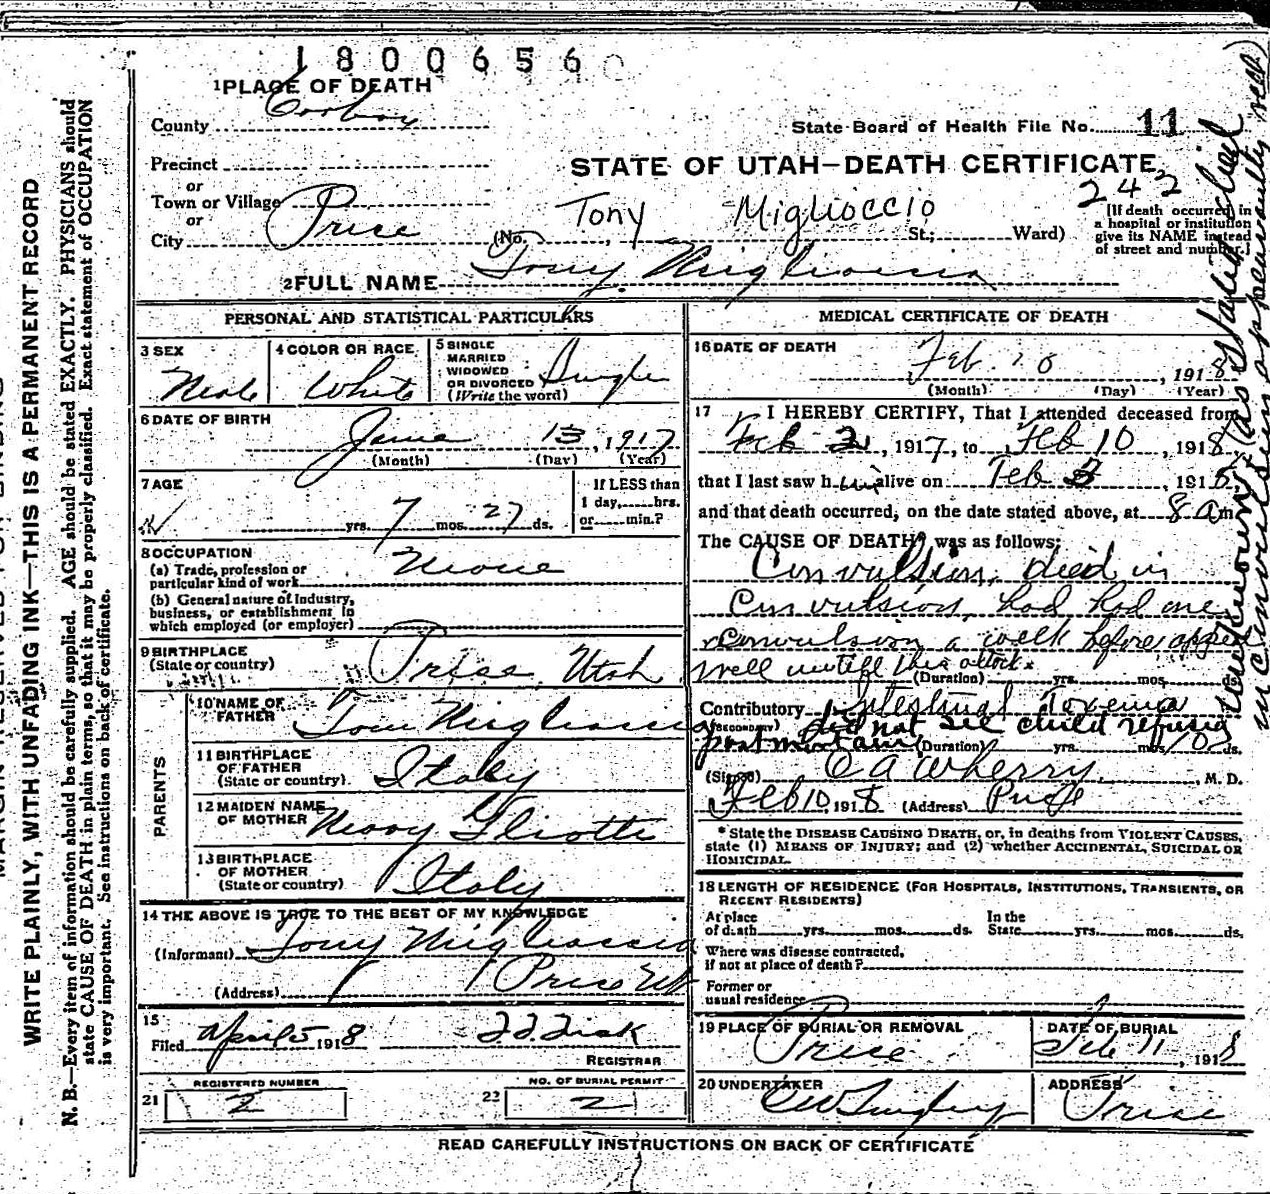 1800656
1 PLACE OF DEATH
County Carbon
State Board of Health File No. 11
Precinct
STATE OF UTAH—DEATH CERTIFICATE
or
242
Town or Village
Tony Miglioccio
or
City Price
(No. St.; Ward)
[If death occurred in
a hospital or institution
give its NAME instead
of street and number.]
2 FULL NAME Tony Migliaccio
PERSONAL AND STATISTICAL PARTICULARS
3 SEX Male
4 COLOR OR RACE White
5 SINGLE
MARRIED
WIDOWED
OR DIVORCED
(Write the word) Single
6 DATE OF BIRTH
June 13, 1917
(Month) (Day) (Year)
7 AGE
yrs. 7 mos. 27 ds.
If LESS than
1 day, hrs.
or min.?
8 OCCUPATION
(a) Trade, profession or
particular kind of work None
(b) General nature of Industry,
business, or establishment in
which employed (or employer)
9 BIRTHPLACE
(State or country) Price, Utah
PARENTS
10 NAME OF
FATHER Tony Migliaccio
11 BIRTHPLACE
OF FATHER
(State or country) Italy
12 MAIDEN NAME
OF MOTHER Mary
13 BIRTHPLACE
OF MOTHER
(State or country) Italy
14 THE ABOVE IS TRUE TO THE BEST OF MY KNOWLEDGE
(Informant) Tony Migliaccio
(Address) Price Ut
15
Filed April 5 1918
REGISTRAR
REGISTERED NUMBER
21 2
NO. OF BURIAL PERMIT
22 2
MEDICAL CERTIFICATE OF DEATH
16 DATE OF DEATH
Feb. 10, 1918
(Month) (Day) (Year)
17 I HEREBY CERTIFY, That I attended deceased from
Feb 2, 1917, to Feb 10, 1918,
that I last saw him alive on Feb 2, 1918,
and that death occurred, on the date stated above, at 8 a m.
The CAUSE OF DEATH* was as follows:
Convulsion, died in
Convulsion, had had one
convulsion a week before
well untill this attack.
(Duration) yrs. mos. ds.
Contributory Intestinal Toxemia
(SECONDARY) did not see child refused
post mortam (Duration) yrs. mos. 10 ds.
(Signed) C A Wherry, M. D.
Feb 10, 1918 (Address) Price
* State the DISEASE CAUSING DEATH, or, in deaths from VIOLENT CAUSES,
state (1) MEANS OF INJURY; and (2) whether ACCIDENTAL, SUICIDAL OR
HOMICIDAL.
18 LENGTH OF RESIDENCE (FOR HOSPITALS, INSTITUTIONS, TRANSIENTS, OR
RECENT RESIDENTS)
At place
of death yrs. mos. ds.
In the
State yrs. mos. ds.
Where was disease contracted,
if not at place of death?
Former or
usual residence
19 PLACE OF BURIAL OR REMOVAL
Price
DATE OF BURIAL
Feb 11, 1918
20 UNDERTAKER
ADDRESS
Price
READ CAREFULLY INSTRUCTIONS ON BACK OF CERTIFICATE
WRITE PLAINLY, WITH UNFADING INK—THIS IS A PERMANENT RECORD
N. B.—Every item of information should be carefully supplied. AGE should be stated EXACTLY. PHYSICIANS should
state CAUSE OF DEATH in plain terms, so that it may be properly classified. Exact statement of OCCUPATION
is very important. See instructions on back of certificate.